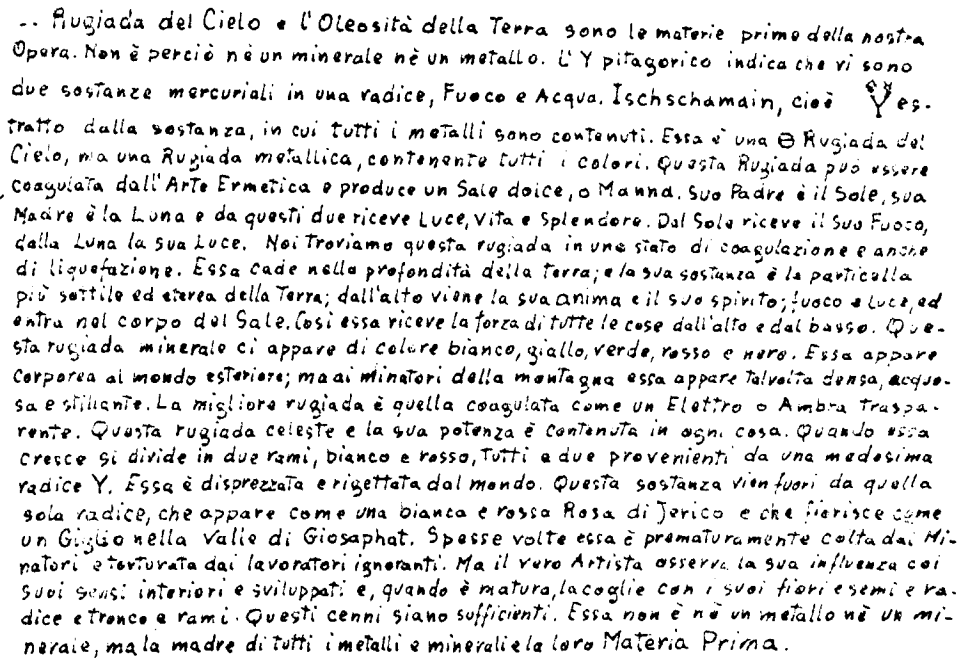 ... Rugiada del Cielo e l'Oleosità della Terra sono le materie prime della nostra
Opera. Non è perciò nè un minerale nè un metallo. L'Y pitagorico indica che vi sono
due sostanze mercuriali in una radice, Fuoco e Acqua. Ischschamain, cioè Y es-
tratto dalla sostanza, in cui tutti i metalli sono contenuti. Essa e' una Θ Rugiada del
Cielo, ma una Rugiada metallica, contenente tutti i colori. Questa Rugiada può essere
coagulata dall'Arte Ermetica e produce un Sale dolce, o Manna. Suo Padre è il Sole, sua
Madre è la Luna e da questi due riceve Luce, Vita e Splendore. Dal Sole riceve il suo Fuoco,
dalla Luna la sua Luce. Noi Troviamo questa rugiada in uno stato di coagulazione e anche
di liquefazione. Essa cade nella profondità della terra; e la sua sostanza è la particella
più sottile ed eterea della Terra; dall'alto viene la sua anima e il suo spirito; fuoco e luce, ed
entra nel corpo del Sale. Così essa riceve la forza di tutte le cose dall'alto e dal basso. Que-
sta rugiada minerale ci appare di colore bianco, giallo, verde, rosso e nero. Essa appare
corporea al mondo esteriore; ma ai minatori della montagna essa appare talvolta densa, acquo-
sa e stillante. La migliore rugiada è quella coagulata come un Elettro o Ambra Traspa-
rente. Questa rugiada celeste e la sua potenza è contenuta in ogni cosa. Quando essa
cresce si divide in due rami, bianco e rosso, tutti e due provenienti da una medesima
radice Y. Essa è disprezzata e rigettata dal mondo. Questa sostanza vien fuori da quella
sola radice, che appare come una bianca e rossa Rosa di Jerico e che fiorisce come
un Giglio nella Valle di Giosaphat. Spesse volte essa è prematuramente colta dai Mi-
natori e torturata dai lavoratori ignoranti. Ma il vero Artista osserva la sua influenza coi
suoi sensi interiori e sviluppati e, quando è matura, la coglie con i suoi fiori e semi e ra-
dice e tronco e rami. Questi cenni siano sufficienti. Essa non è nè un metallo nè un mi-
nerale, ma la madre di tutti i metalli e minerali e la loro Materia Prima.